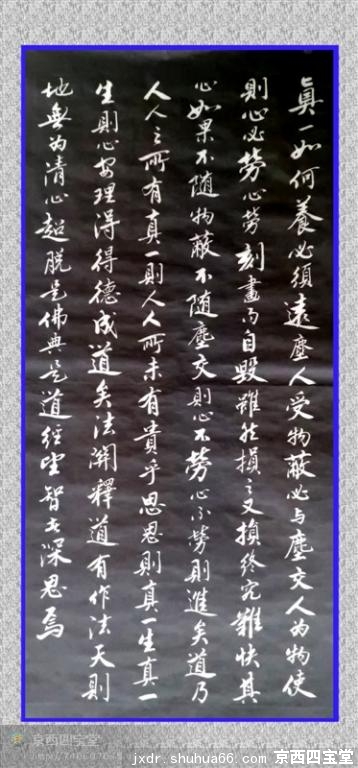 真一如何養必須遠塵人受物蔽必与塵交人為物使
則心必劳心劳刻畫而自毀雖然損之又損終究難快其
心如果不随物蔽不随塵交則心不劳心不劳則進矣道乃
人人之所有真一則人人所未有貴乎思思則真一生真一
生則心安理得得德成道矣法開釋道有作法天則
地無为清心超脱是佛典是道經望智者深思焉
京西四宝堂
jxdr.shuhua66.com 京西四宝堂